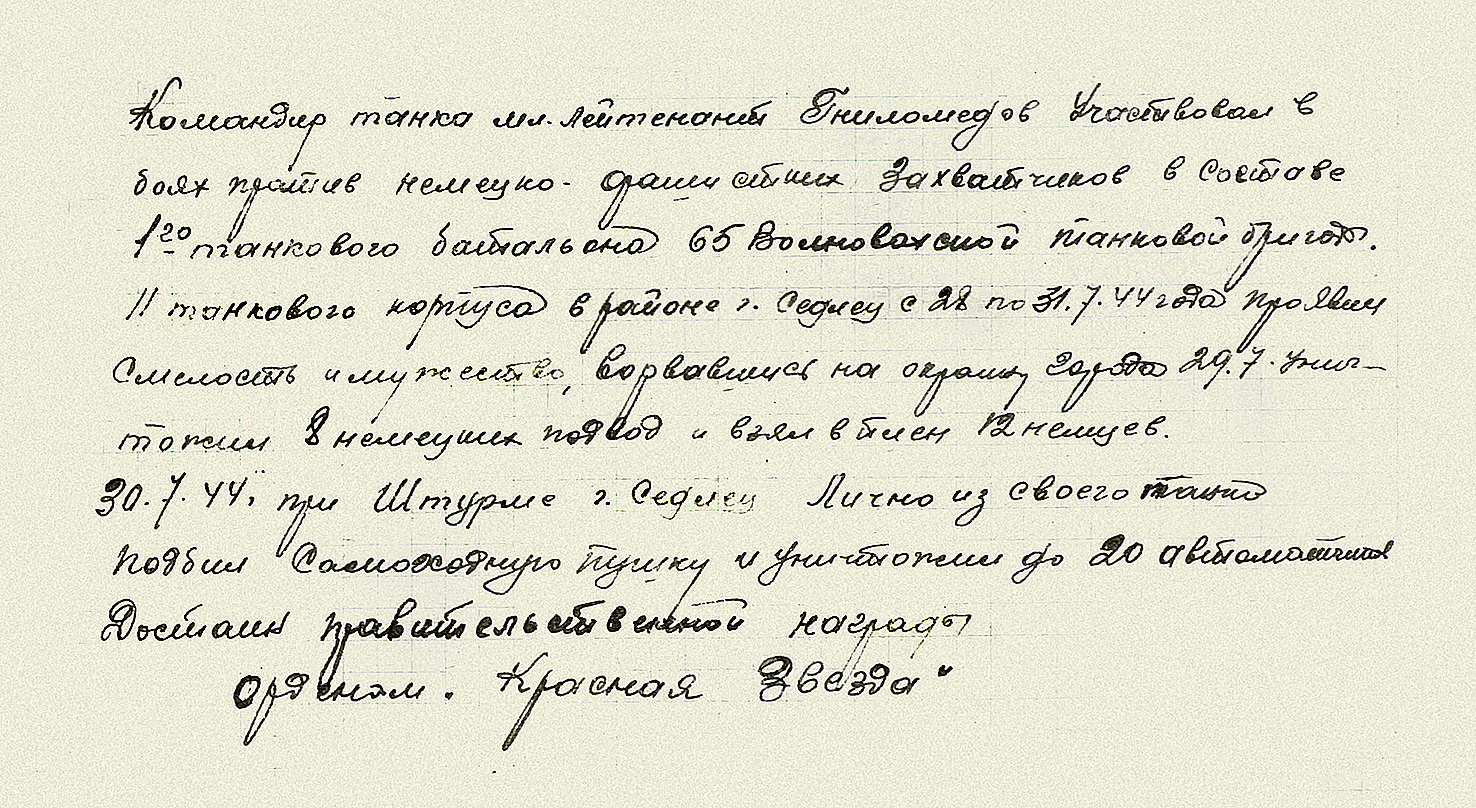 Командир танка мл. лейтенант Гниломедов Участвовал в
боях против немецко-фашистких Захватчиков в Составе
1го танкового батальона 65 Волновахской танковой бригады.
11 танкового корпуса в районе г. Седлец с 28 по 31.7.44 года проявил
Смелость и мужество, ворвавшись на окраину города 29.7. Уни-
тожил 8 немецких подвод и взял в плен 12 немцев.
30.7.44г при Штурме г. Седлец Лично из своего танка
подбил Самоходную пушку и уничтожил до 20 автоматчиков
Достоин правительственной награды
орденом „Красная Звезда"